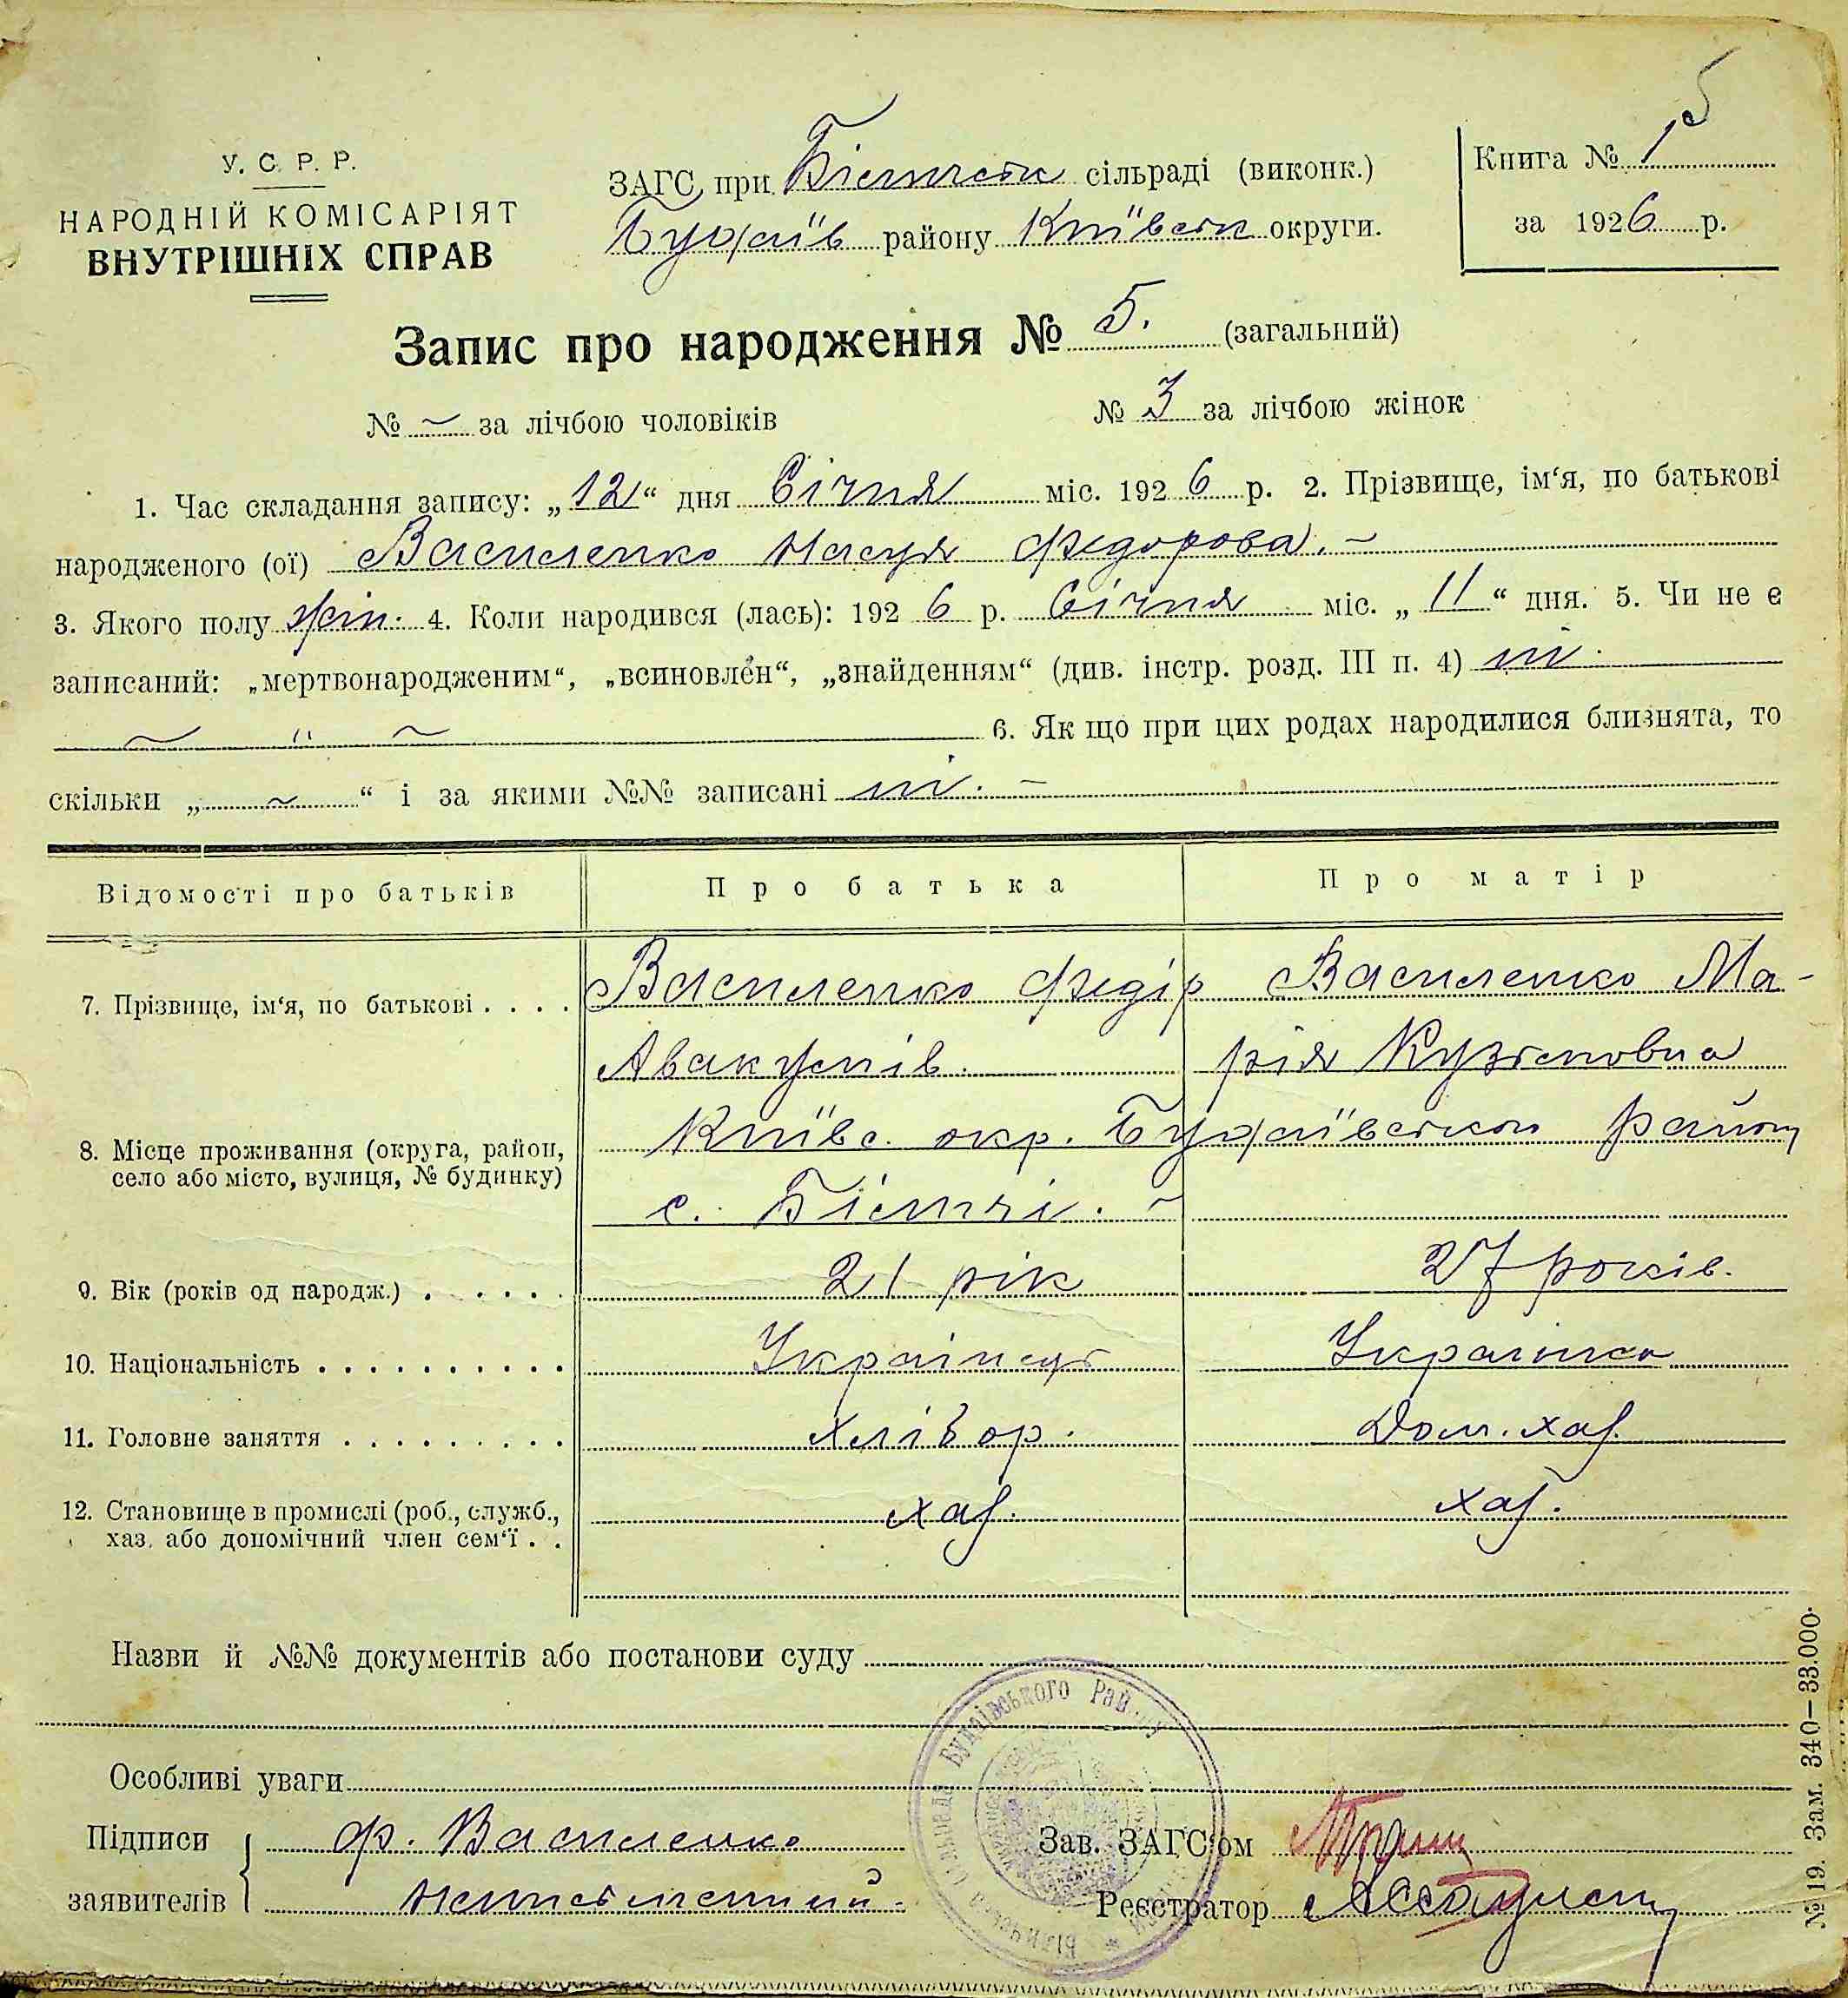 5
У. С. Р. Р.
НАРОДНІЙ КОМІСАРІЯТ
ВНУТРІШНІХ СПРАВ
ЗАГС при Біличськ сільраді (виконк.)
Будаїв району Київськ округи.
Книга № 1
за 1926 р.
Запис про народження № 5. (загальний)
№ ~ за лічбою чоловіків № 3 за лічбою жінок
1. Час складання запису: „12“ дня Січня міс. 1926 р. 2. Прізвище, ім‘я, по батькові
народженого (ої) Василенко Настя Федорова. –
3. Якого полу жін. 4. Коли народився (лась): 1926 р. Січня міс. „11“ дня. 5. Чи не є
записаний: „мертвонародженим“, „всиновлен“, „знайденням“ (див. інстр. розд. III п. 4) ні.
~ " ~ 6. Як що при цих родах народилися близнята, то
скільки „ ~ “ і за якими №№ записані ні. –
Відомості про батьків Про батька Про матір
7. Прізвище, ім‘я, по батькові . . . . Василенко Федір Василенко Ма-
Авакумів. рія Кузьмовна
8. Місце проживання (округа, район, Київс. окр. Будаївського району
село або місто, вулиця, № будинку) с. Біличі. –
9. Вік (років од народж.) . . . . . . 21 рік 27 років.
10. Національність . . . . . . . . . . Українець Українка
11. Головне заняття . . . . . . . . . Хлібор. Дом. хаз.
12. Становище в промислі (роб., служб., хаз. хаз.
хаз. або допомічний член сем‘ї . .
Назви й №№ документів або постанови суду
Особливі уваги
Підписи Ф. Василенко Зав. ЗАГС‘ом
заявителів Неписьменний. Реєстратор
Біличська Сільрада Будаївського Району
№ 19. Зам. 340—33.000.